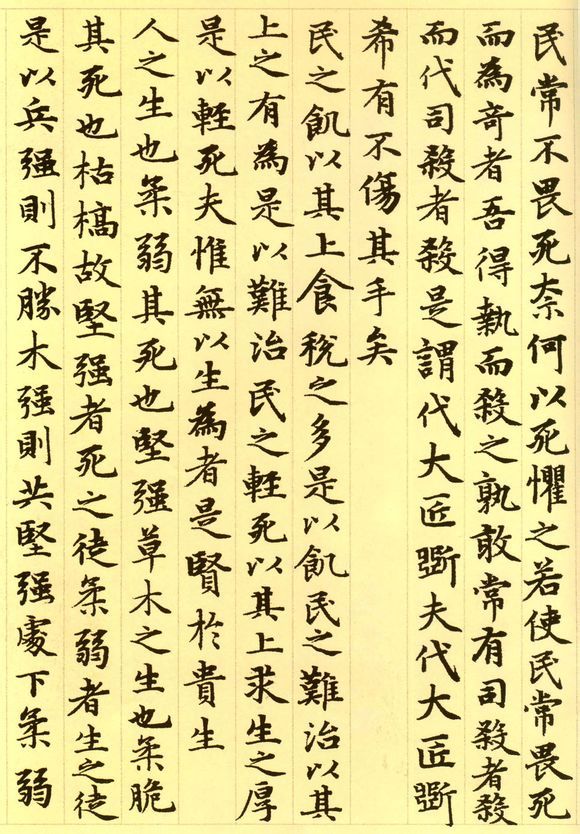 民常不畏死柰何以死懼之若使民常畏死
而為奇者吾得執而殺之孰敢常有司殺者殺
而代司殺者殺是謂代大匠斲夫代大匠斲
希有不傷其手矣
民之飢以其上食稅之多是以飢民之難治以其
上之有為是以難治民之輕死以其上求生之厚
是以輕死夫惟無以生為者是賢於貴生
人之生也柔弱其死也堅强草木之生也柔脆
其死也枯槁故堅强者死之徒柔弱者生之徒
是以兵强則不勝木强則共堅强處下柔弱